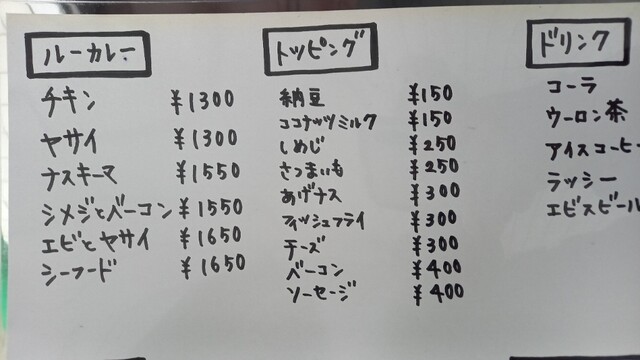 ルーカレー
チキン ¥1300
ヤサイ ¥1300
ナスキーマ ¥1550
シメジとベーコン ¥1550
エビとヤサイ ¥1650
シーフード ¥1650
トッピング
納豆 ¥150
ココナッツミルク ¥150
しめじ ¥250
さつまいも ¥250
あげナス ¥300
フィッシュフライ ¥300
チーズ ¥300
ベーコン ¥400
ソーセージ ¥400
ドリンク
コーラ
ウーロン茶
アイスコーヒー
ラッシー
エビスビール